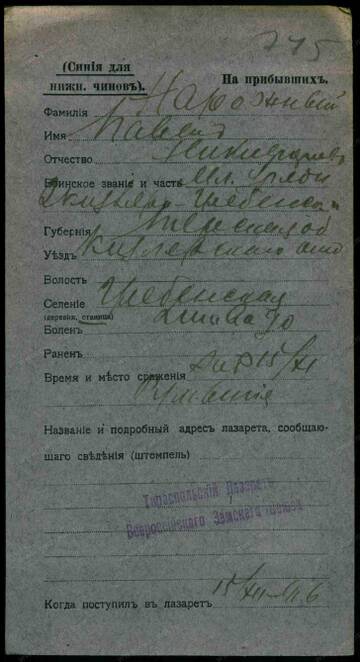 775
(Синія для
нижн. чиновъ).
На прибывшихъ.
Фамилія Нарожный
Имя Павелъ
Отчество
Воинское званіе и часть Мл.
2 Кизляро-Гребенск.
Губернія Терской об
Уѣздъ Кизлярскаго отд
Волость
Селеніе Гребенская
(деревня, станица)
Боленъ
Раненъ
Время и мѣсто сраженія 15/XI
Румынія
Названіе и подробный адресъ лазарета, сообщаю-
щаго свѣдѣнія (штемпель)
Тираспольскій Лазаретъ
Всероссійскаго Земскаго Союза
15/XII-16
Когда поступилъ въ лазаретъ